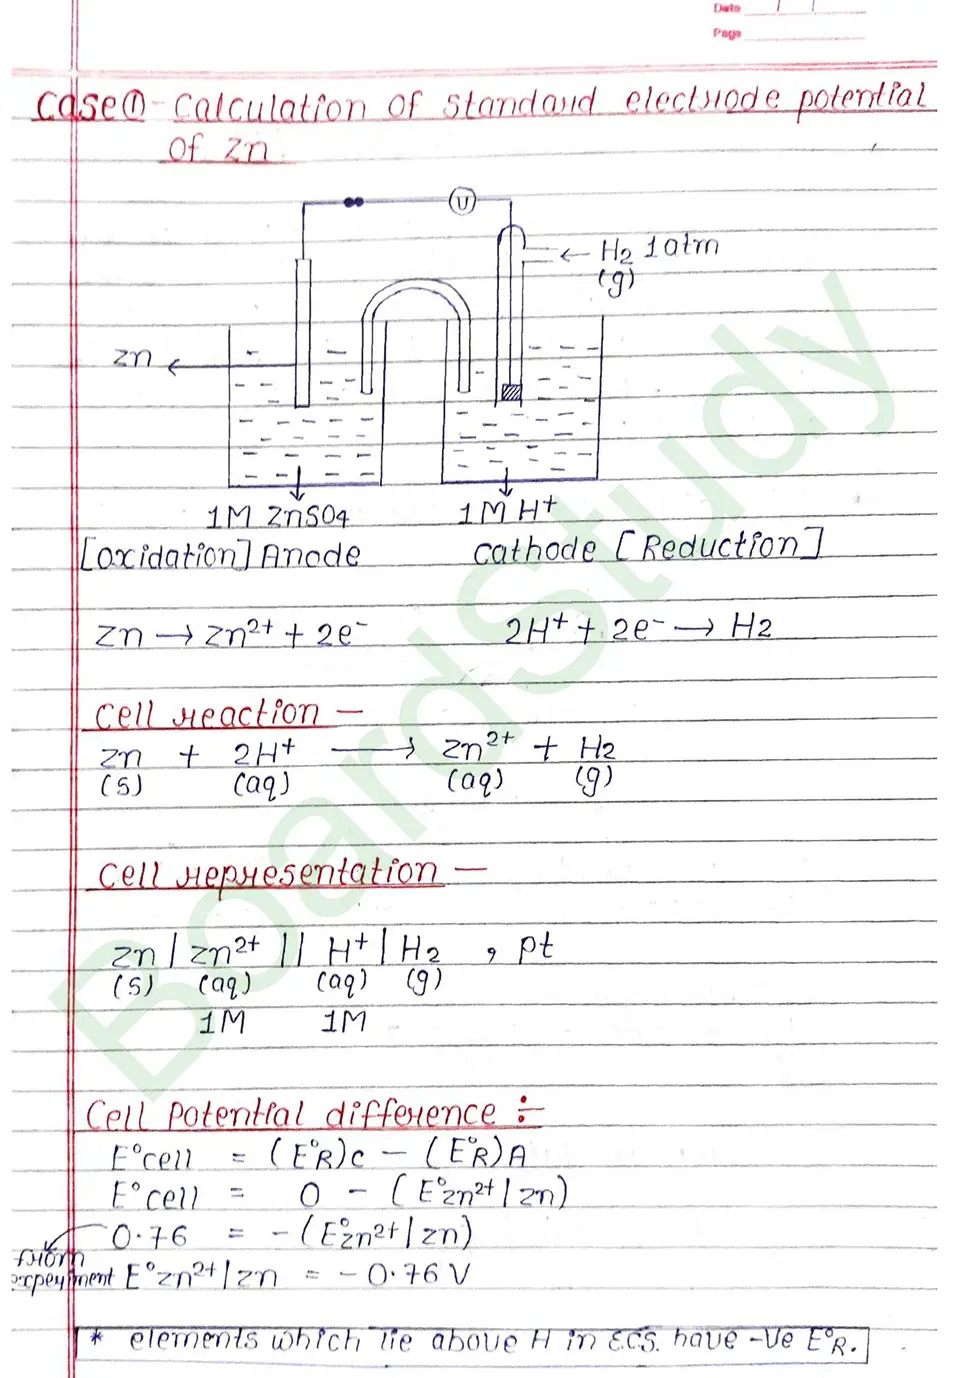 Date
Page
Case① - Calculation of standard electrode potential
of Zn.
V
← H2 1atm
(g)
Zn
1M ZnSO4
1M H+
[oxidation] Anode
Cathode [Reduction]
Zn → Zn2+ + 2e-
2H+ + 2e- → H2
Cell reaction -
Zn + 2H+ → Zn2+ + H2
(s) (aq) (aq) (g)
Cell representation -
Zn | Zn2+ || H+ | H2 , pt
(s) (aq) (aq) (g)
1M 1M
Cell Potential difference ÷
E°cell = (E°R)c - (E°R)A
E°cell = 0 - (E°Zn2+ | Zn)
0.76 = - (E°Zn2+ | Zn)
from
experiment E°Zn2+ | Zn = - 0.76 V
* elements which lie above H in E.C.S. have -ve E°R.
BoardStudy